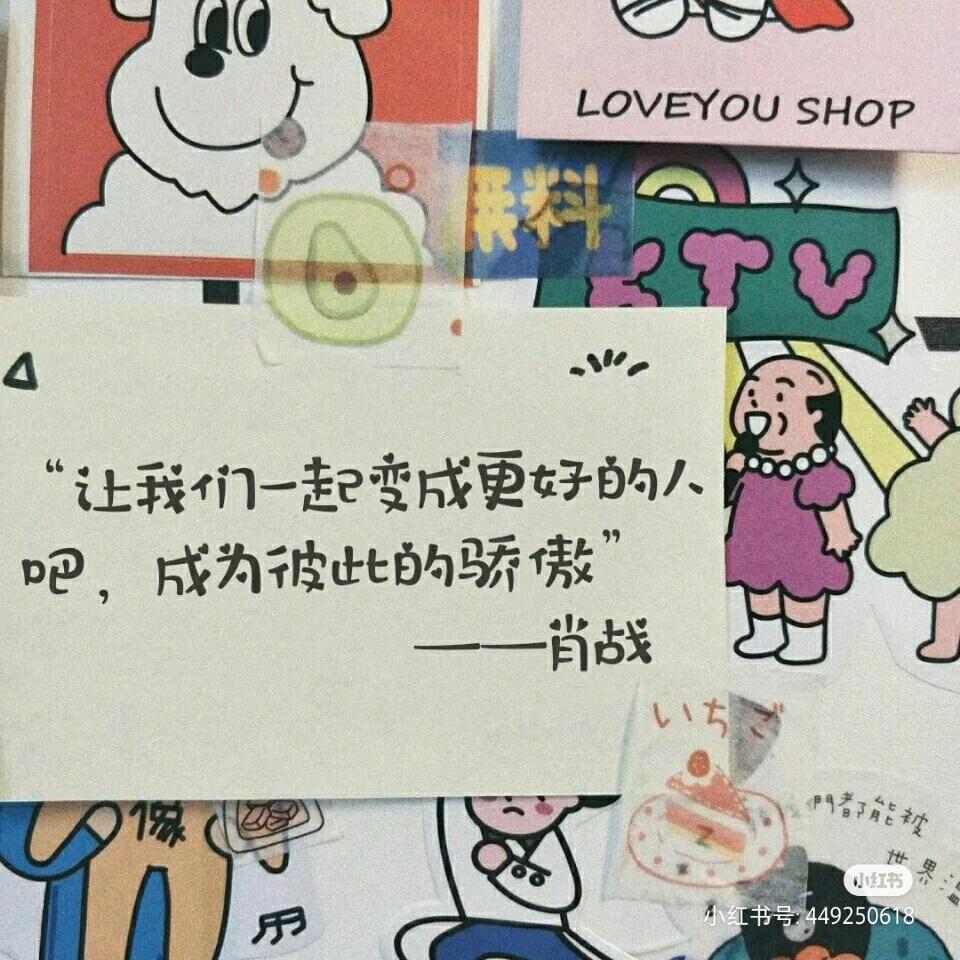 LOVEYOU SHOP
無料
KTV
“让我们一起变成更好的人
吧，成为彼此的骄傲”
——肖战
いちご
像
們都能被
世界温
小红书
小红书号: 449250618